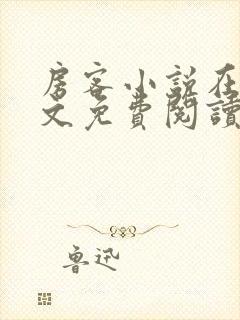 房客小说在
文免費閱讀
鲁迅